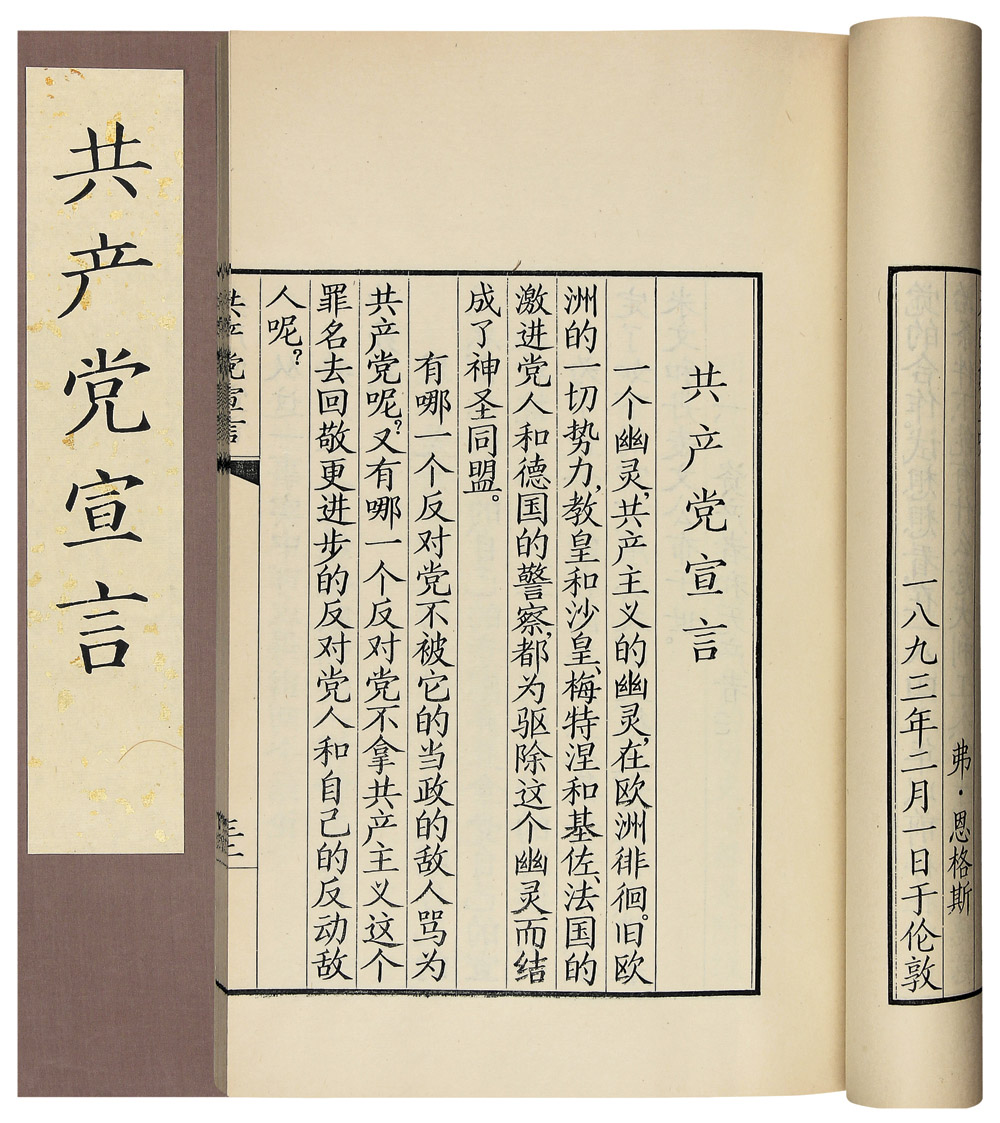 共产党宣言
弗·恩格斯
一八九三年二月一日于伦敦
共产党宣言
一个幽灵，共产主义的幽灵，在欧洲徘徊。旧欧
洲的一切势力，教皇和沙皇、梅特涅和基佐、法国的
激进党人和德国的警察，都为驱除这个幽灵而结
成了神圣同盟。
有哪一个反对党不被它的当政的敌人骂为
共产党呢？又有哪一个反对党不拿共产主义这个
罪名去回敬更进步的反对党人和自己的反动敌
人呢？
共产党宣言